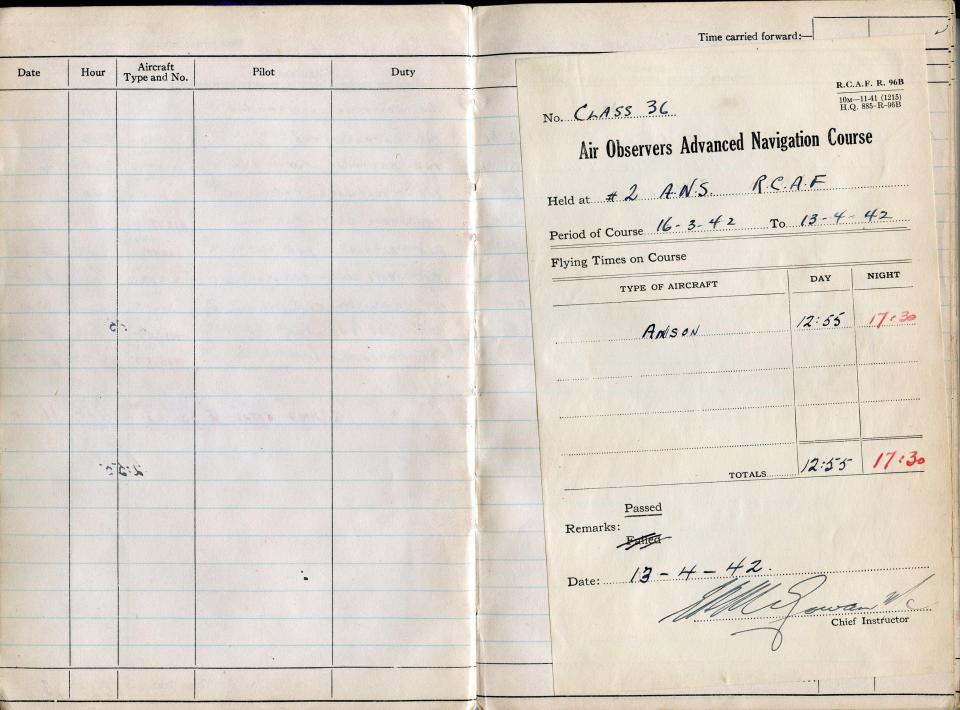 Time carried forward:—
Date Hour Aircraft Type and No. Pilot Duty
R.C.A.F. R. 96B
10M—11-41 (1215)
H.Q. 885-R-96B
No. CLASS 36
Air Observers Advanced Navigation Course
Held at #2 A.N.S. R.C.A.F
Period of Course 16-3-42 To 13-4-42
Flying Times on Course
TYPE OF AIRCRAFT DAY NIGHT
ANSON 12:55 17:30
TOTALS 12:55 17:30
Passed
Remarks:
Failed
Date: 13-4-42.
Chief Instructor